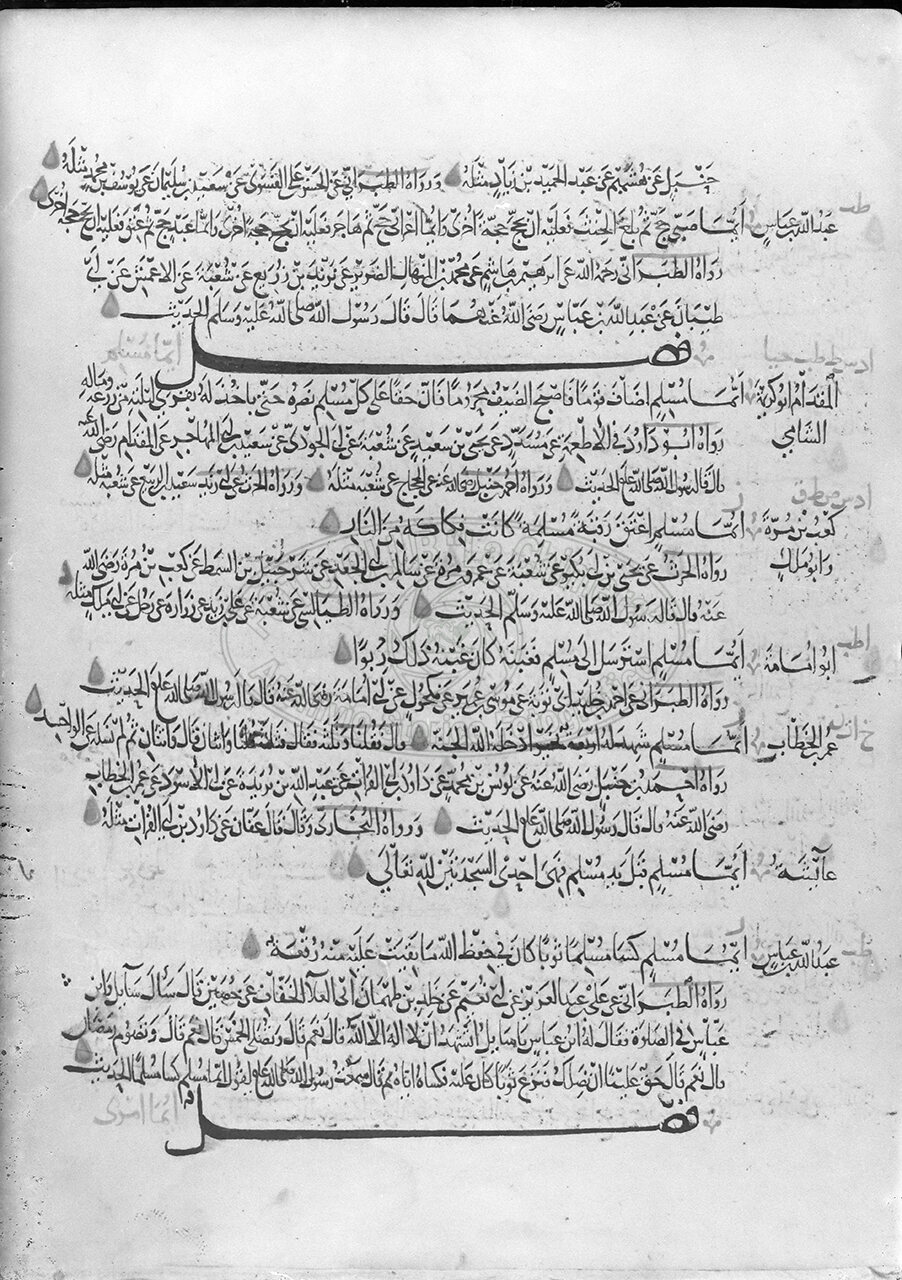 حنبل عن هشيم عن عبد الحميد بن زياد مثله ورواه الطبراني عن الحسن علي الفسوي عن سعيد بن سليمان عن يوسف بن محمد مثله
طب
عبد الله بن عباس أيما صبي حج ثم بلغ الحنث فعليه ان يحج حجة اخرى وايما اعرابي حج ثم هاجر فعليه ان يحج حجة اخرى وايما عبد حج ثم عتق فعليه ان يحج حجة اخرى
رواه الطبراني رحمه الله عن ابرهيم بن هاشم عن محمد بن المنهال الضرير عن يزيد بن زريع عن شعبة عن الاعمش عن ابي
ظبيان عن عبد الله بن عباس رضي الله عنهما قال قال رسول الله صلى الله عليه وسلم الحديث
فصل
أيما مسلم
المقدام ابو كريمة أيما مسلم اضاف قوما فاصبح الضيف محروما قال حقا على كل مسلم نصره حتى ياخذ له بقرى ليلته من زرعه وماله
الشامي
رواه ابو داود في الاطعمة عن مسدد عن يحيى بن سعيد عن شعبة عن ابي الجودي عن سعيد بن ابي المهاجر عن المقدام رضي الله عنه
قال قال رسول الله صلى الله عليه الحديث ورواه احمد حنبل رضي الله عنه عن الحجاج عن شعبة مثله ورواه الحرث عن ابي زيد سعيد بن الربيع عن شعبة مثله
كعب بن مرة أيما مسلم اعتق رقبة مسلمة كانت فكاكه من النار
وابو ملك
رواه الحرث عن يحيى بن ابي بكير عن شعبة عن عمرو بن مرة عن سالم بن ابي الجعد عن شرحبيل بن السمط عن كعب بن مرة رضي الله
عنه قال قال رسول الله صلى الله عليه وسلم الحديث ورواه الطيالسي عن شعبة عن علي بن زيد عن زرارة عن رجل عن ابي ملك مثله
ابو امامة أيما مسلم استرسل الى مسلم فغبنه كان غبنه ذلك ربوا
رواه الطبراني عن احمد بن خليد عن ابي توبة عن موسى بن عمير عن مكحول عن ابي امامة رضي الله عنه قال قال رسول الله صلى الله عليه الحديث
عمر بن الخطاب أيما مسلم شهد له اربعة بخير ادخله الله الجنة قال فقلنا وثلثة فقال وثلثة فقلنا واثنان قال واثنان ثم لم نسله عن الواحد
رواه احمد بن حنبل رضي الله عنه عن يونس بن محمد عن داود بن ابي الفرات عن عبد الله بن بريدة عن ابي الاسود عن عمر بن الخطاب
رضي الله عنه قال قال رسول الله صلى الله عليه الحديث ورواه البخاري وقال قال عفان عن داود بن ابي الفرات مثله
عائشة أيما مسلم قبل يد مسلم فهي احدى السجدتين لله تعالى
طب
عبد الله بن عباس أيما مسلم كسا مسلما ثوبا كان في حفظ الله ما بقيت عليه منه رقعة
رواه الطبراني عن علي بن عبد العزيز عن ابي نعيم عن خالد بن طهمان ابي العلا الخفاف عن حصين قال سأل سايل وابن
عباس في الصلوة فقال له ابن عباس يا سايل اتشهد ان لا اله الا الله قال نعم قال وتصلي الخمس قال نعم قال وتصوم رمضان
قال نعم قال حق علينا ان نصلك فنزع ثوبا كان عليه فكساه اياه ثم قال سمعت رسول الله صلى الله عليه يقول ايما مسلم كسا مسلما الحديث
فصل
أيما امرئ